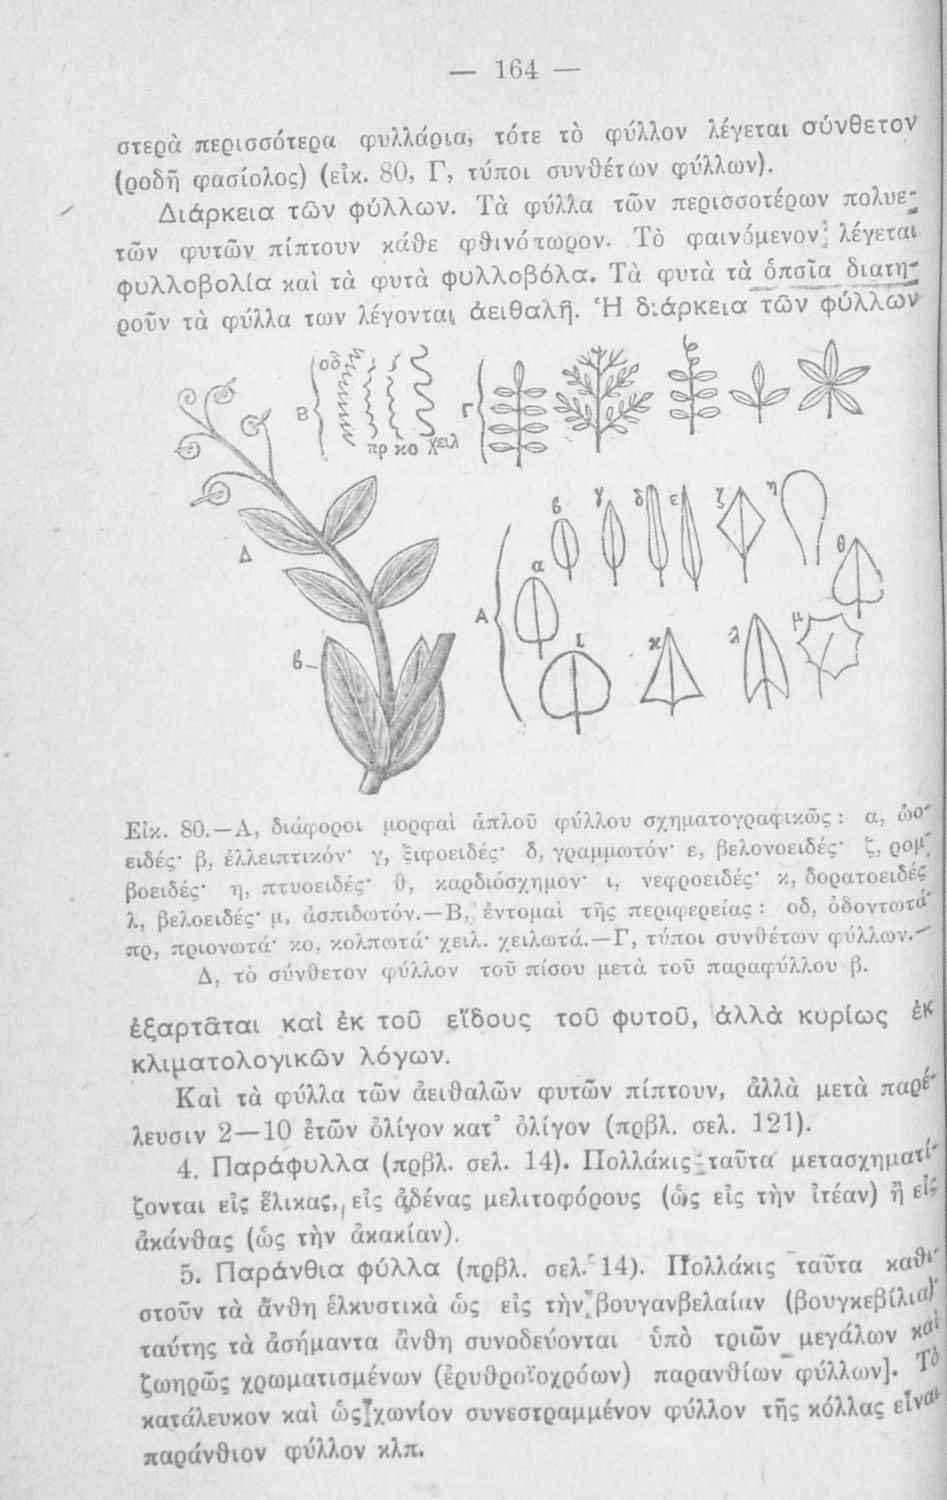 — 164 —
στερὰ περισσότερα φυλλάρια, τότε τὸ φύλλον λέγεται σύνθετον
(ροδῆ φασίολος) (εἰκ. 80, Γ, τύποι συνθέτων φύλλων).
Διάρκεια τῶν φύλλων. Τὰ φύλλα τῶν περισσοτέρων πολυε-
τῶν φυτῶν πίπτουν κάθε φθινόπωρον. Τὸ φαινόμενον λέγεται
φυλλοβολία καὶ τὰ φυτὰ φυλλοβόλα. Τὰ φυτὰ τὰ ὁποῖα διατη-
ροῦν τὰ φύλλα των λέγονται ἀειθαλῆ. Ἡ διάρκεια τῶν φύλλων
Β οδ πρ κο χειλ Γ
Δ β
Α α β γ δ ε ζ η θ
ι κ λ μ
Εἰκ. 80.—Α, διάφοροι μορφαὶ ἁπλοῦ φύλλου σχηματογραφικῶς : α, ὠο-
ειδές· β, ἐλλειπτικόν· γ, ξιφοειδές· δ, γραμμωτόν· ε, βελονοειδές· ζ, ρομ-
βοειδές· η, πτυοειδές· θ, καρδιόσχημον· ι, νεφροειδές· κ, δορατοειδές
λ, βελοειδές· μ, ἀσπιδωτόν.—Β, ἐντομαὶ τῆς περιφερείας : οδ, ὀδοντωτά
πρ, πριονωτά· κο, κολπωτά· χειλ. χειλωτά.—Γ, τύποι συνθέτων φύλλων.—
Δ, τὸ σύνθετον φύλλον τοῦ πίσου μετὰ τοῦ παραφύλλου β.
ἐξαρτᾶται καὶ ἐκ τοῦ εἴδους τοῦ φυτοῦ, ἀλλὰ κυρίως ἐκ
κλιματολογικῶν λόγων.
Καὶ τὰ φύλλα τῶν ἀειθαλῶν φυτῶν πίπτουν, ἀλλὰ μετὰ παρέ-
λευσιν 2—10 ἐτῶν ὀλίγον κατ' ὀλίγον (πρβλ. σελ. 121).
4. Παράφυλλα (πρβλ. σελ. 14). Πολλάκις ταῦτα μετασχηματί-
ζονται εἰς ἕλικας, εἰς ἀδένας μελιτοφόρους (ὡς εἰς τὴν ἰτέαν) ἢ εἰς
ἀκάνθας (ὡς τὴν ἀκακίαν).
5. Παράνθια φύλλα (πρβλ. σελ. 14). Πολλάκις ταῦτα καθι-
στοῦν τὰ ἄνθη ἑλκυστικὰ ὡς εἰς τὴν βουγανβελαίαν (βουγκεβίλια)
ταύτης τὰ ἀσήμαντα ἄνθη συνοδεύονται ὑπὸ τριῶν μεγάλων καὶ
ζωηρῶς χρωματισμένων (ἐρυθροϊοχρόων) παρανθίων φύλλων]. Τὸ
κατάλευκον καὶ ὡς χωνίον συνεστραμμένον φύλλον τῆς κόλλας εἶναι
παράνθιον φύλλον κλπ.